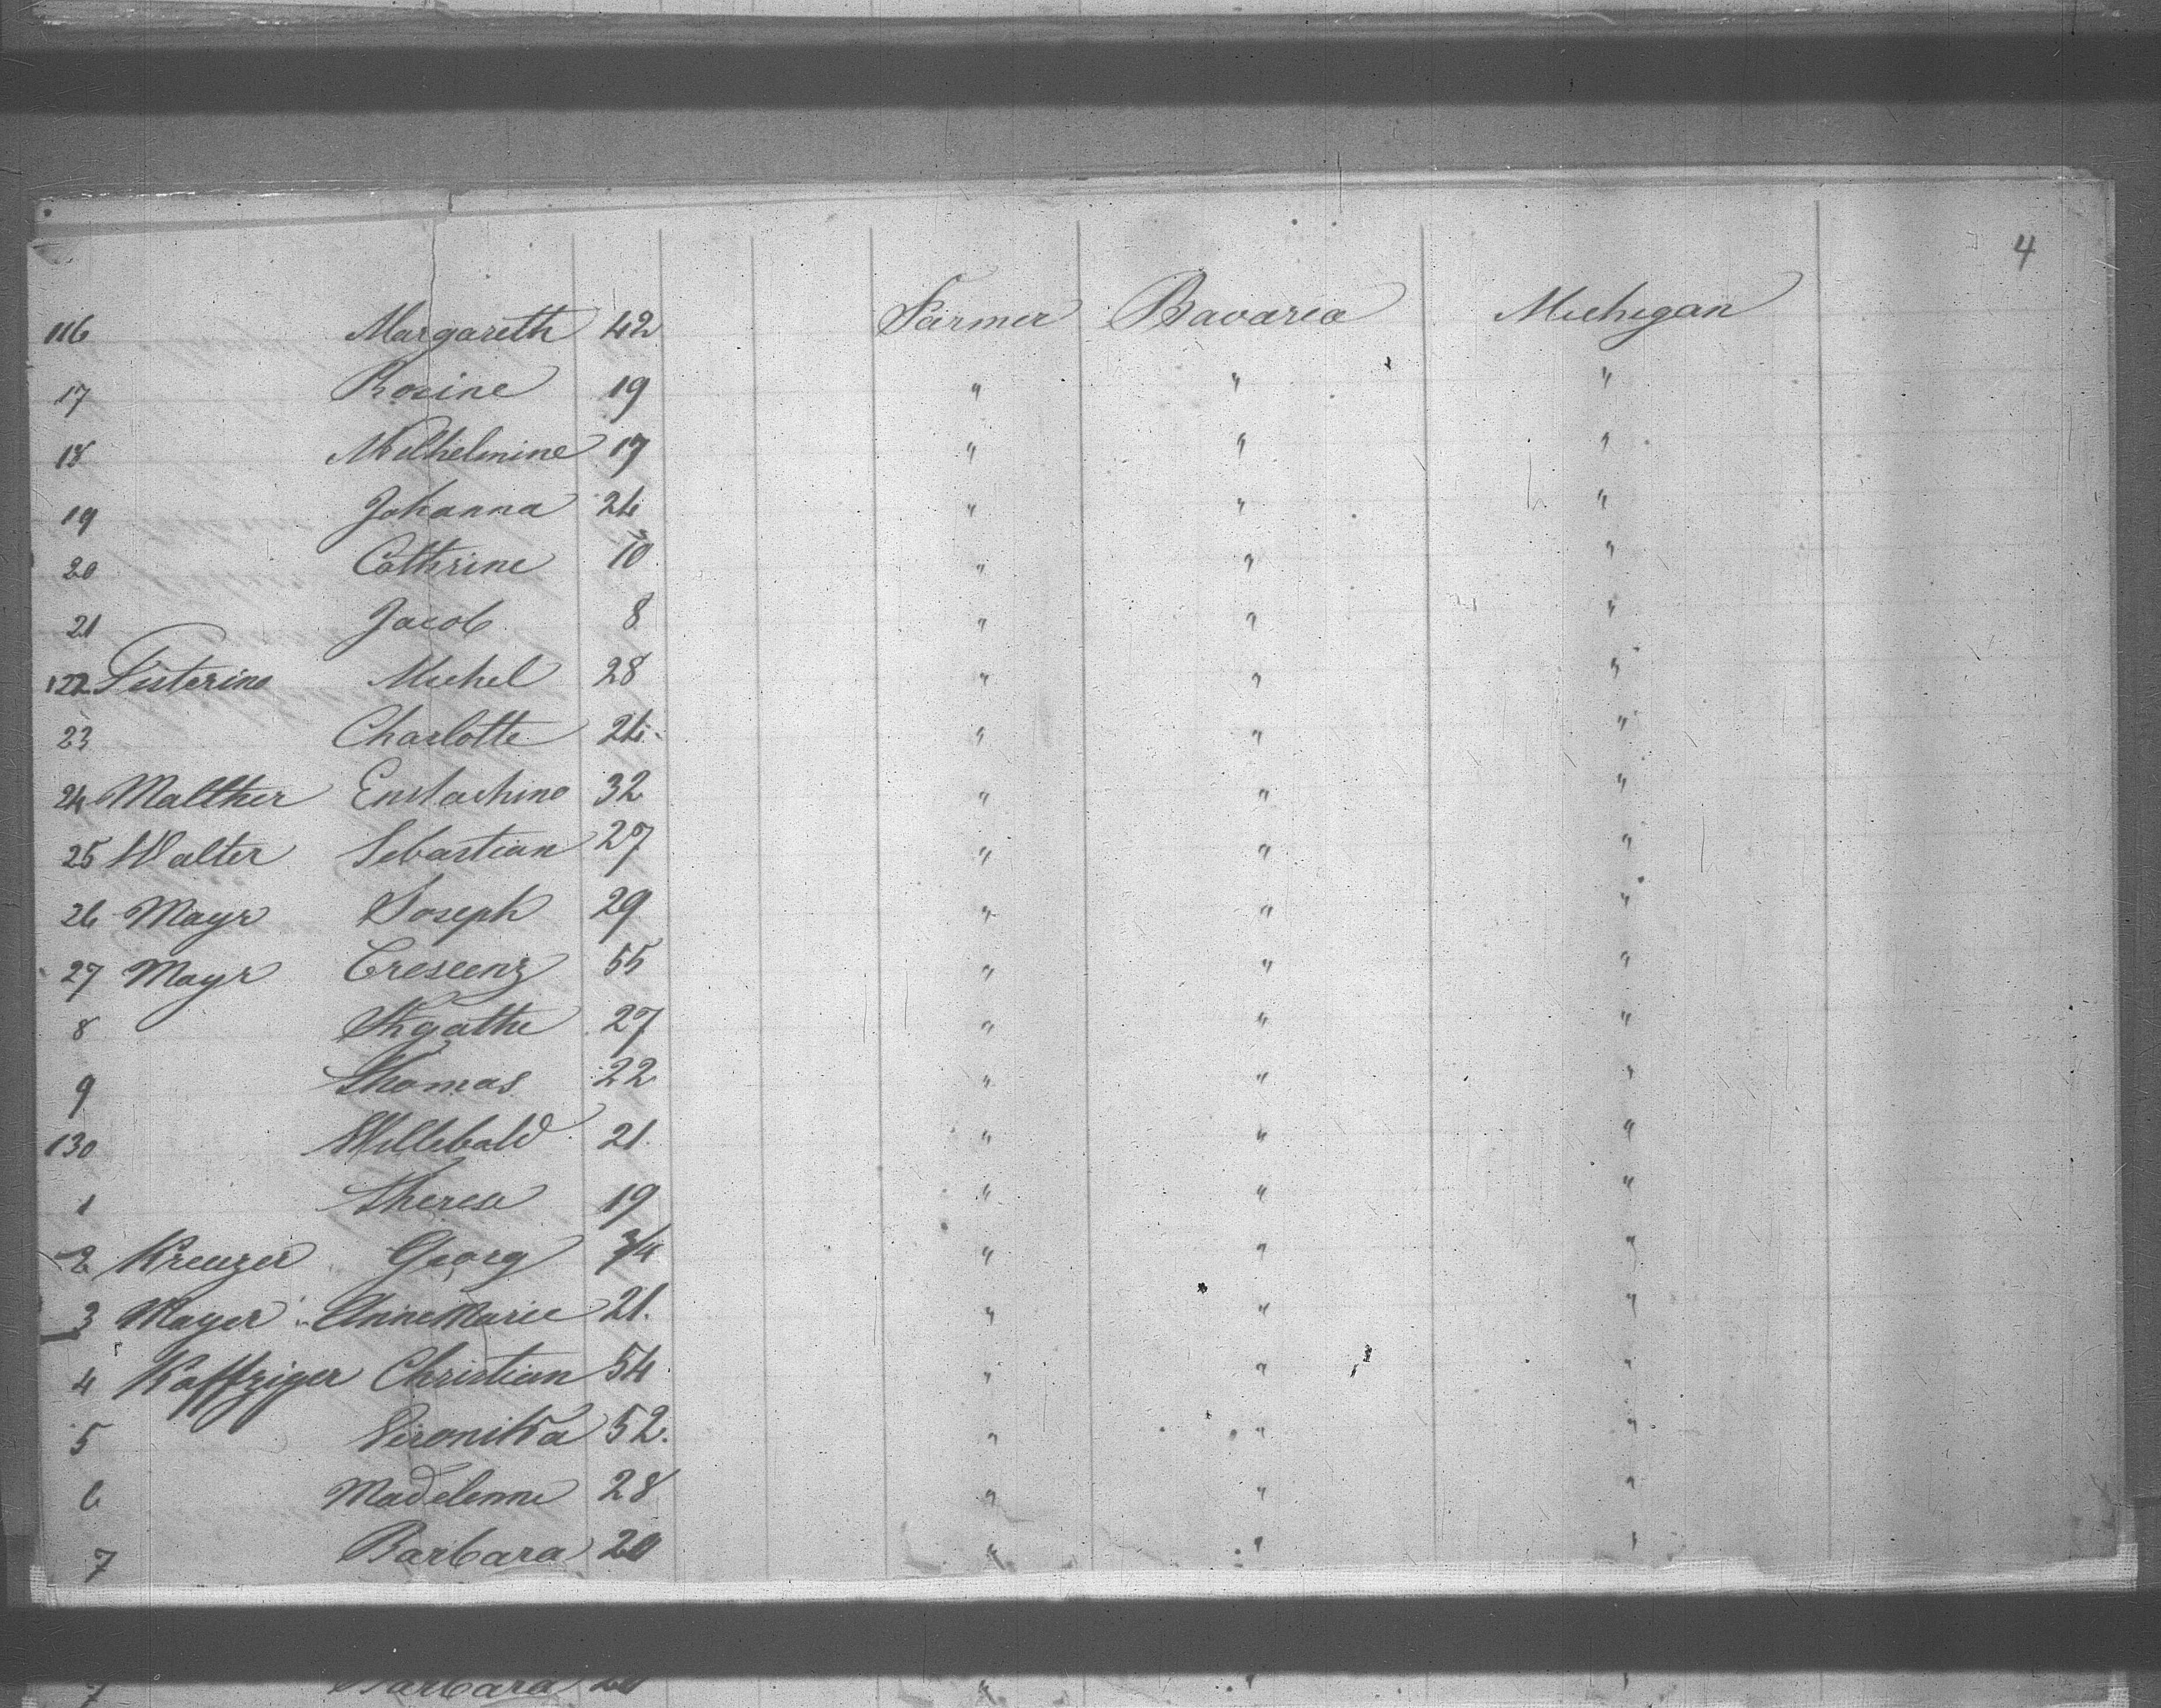 4
116 Margareth 42 Farmer Bavaria Michigan
17 Rosine 19 " " "
18 Wilhelmine 17 " " "
19 Johanna 24 " " "
20 Cathrine 10 " " "
21 Jacob 8 " " "
122 Michel 28 " " "
23 Charlotte 24 " " "
24 Malther 32 " " "
25 Walter Sebastian 27 " " "
26 Mayr Joseph 29 " " "
27 Mayr Crescenz 55 " " "
8 Agathe 27 " " "
9 Thomas 22 " " "
130 Willibald 21. " " "
1 Therese 19 " " "
2 Kreuzer Georg 3/4 " " "
3 Mayer Anne Marie 21. " " "
4 Christian 54 " " "
5 Veronika 52. " " "
6 Madelenne 28 " " "
7 Barbara 20 " " "
7 Barbara 20 " " "